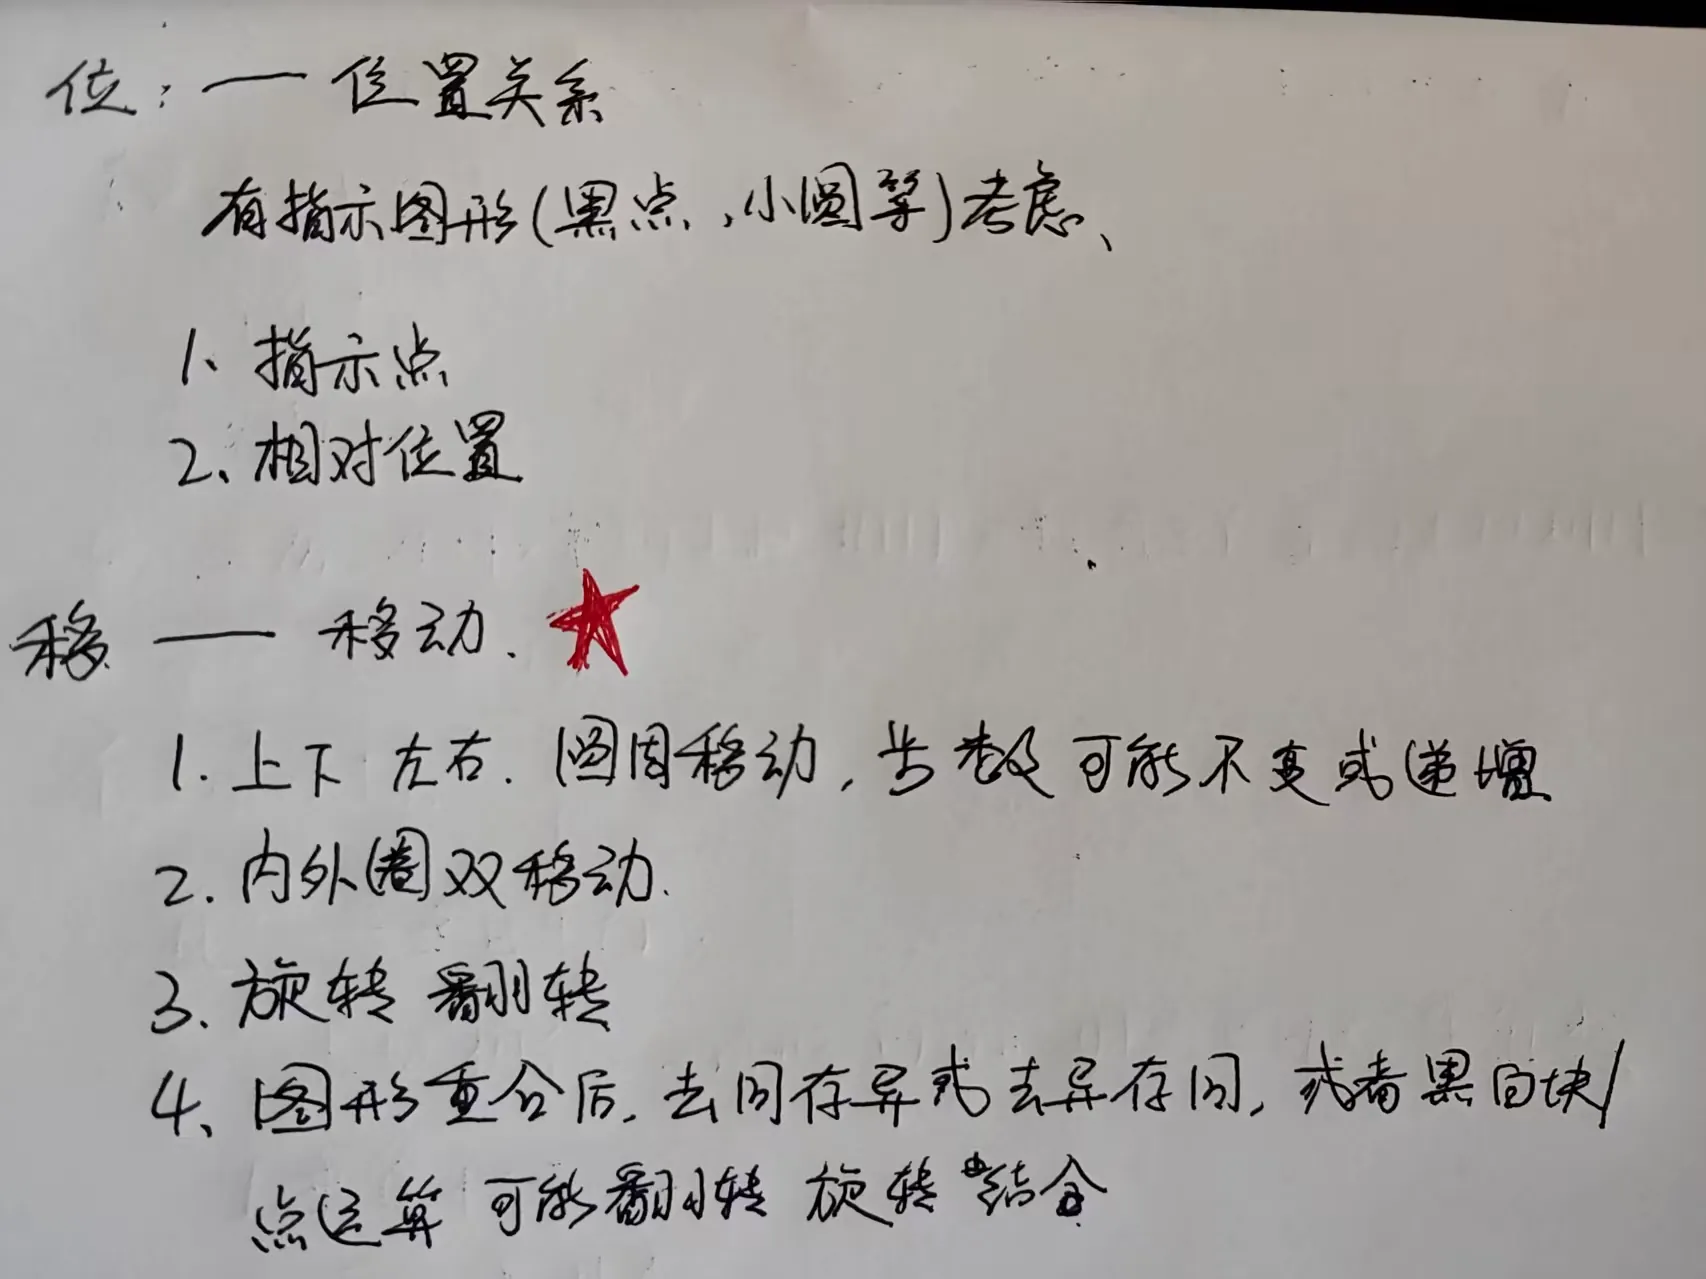 位：— 位置关系
有指示图形(黑点，小圆等)考虑、
1、指示点
2、相对位置
移 — 移动.
1. 上下 左右. 图周移动, 步数可能不变或递增
2. 内外圈双移动.
3. 旋转 翻转
4、图形重合后, 去同存异或去异存同, 或者黑白块/
点运算 可能翻转 旋转 结合